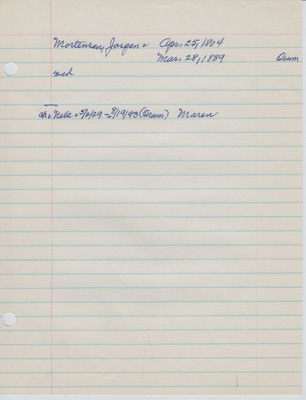 Mortensen, Jorgen Apr. 25, 1804
Mar. 28, 1889 Orum
wed
ch: Nels - 5/2/29 - 8/19/93 (Orum) Maren